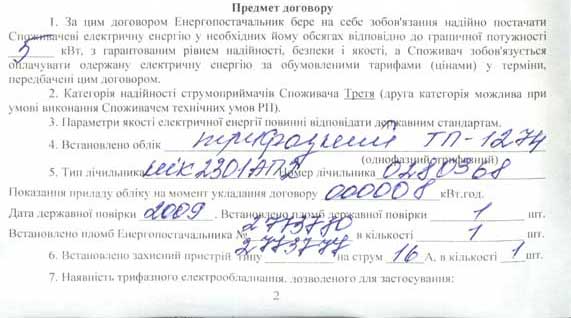 Предмет договору
1. За цим договором Енергопостачальник бере на себе зобов'язання надійно постачати
Споживачеві електричну енергію у необхідних йому обсягах відповідно до граничної потужності
5 кВт, з гарантованим рівнем надійності, безпеки і якості, а Споживач зобов'язується
оплачувати одержану електричну енергію за обумовленими тарифами (цінами) у терміни,
передбачені цим договором.
2. Категорія надійності струмоприймачів Споживача Третя (друга категорія можлива при
умові виконання Споживачем технічних умов РП).
3. Параметри якості електричної енергії повинні відповідати державним стандартам.
4. Встановлено облік трифазний ТП-1274
(однофазний, трифазний)
5. Тип лічильника нік 2301АП2 Номер лічильника 0280368
Показання приладу обліку на момент укладання договору 000008 кВт.год.
Дата державної повірки 2009. Встановлено пломб державної повірки 1 шт.
2773780
Встановлено пломб Енергопостачальника № в кількості 1 шт.
2773774
6. Встановлено захисний пристрій типу на струм 16 А, в кількості 1 шт.
7. Наявність трифазного електрообладнання, дозволеного для застосування:
2